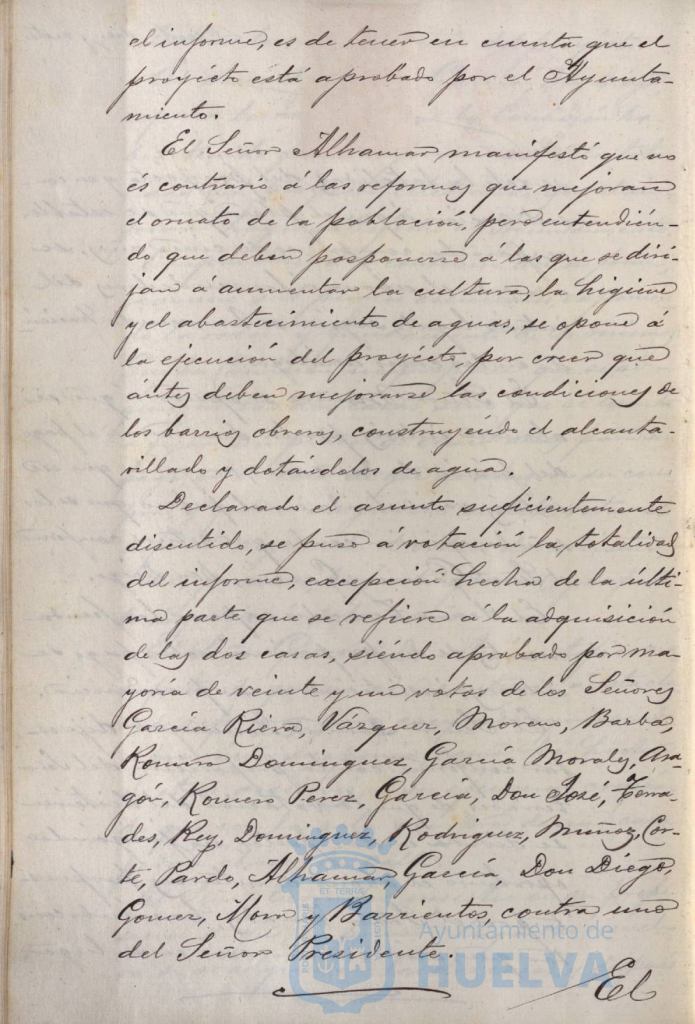 el informe, es de tener en cuenta que el
proyécto está aprobado por el Ayunta-
miento.
El Señor Alhamar manifestó que no
és contrario á las reformas que mejoran
el ornato de la población, pero entendién-
do que deben posponerse á las que se diri-
jan á aumentar la cultura, la higiene
y el abastecimiento de aguas, se opone á
la ejecución del proyécto, por creer que
ántes deben mejorarse las condiciones de
los barrios obreros, construyéndo el alcanta-
rillado y dotándolos de agua.
Declarado el asunto suficientemente
discutido, se puso á votación la totalidad
del informe, excepción hecha de la últi-
ma parte que se refiere á la adquisición
de las dos casas, siéndo aprobado por ma-
yoria de veinte y un votos de los Señores
García Riera, Vázquez, Moreno, Barba,
Romero Dominguez, García Morales, Ara-
gón, Romero Perez, García, Don José, Terra-
des, Rey, Dominguez, Rodriguez, Muñoz, Cor-
te, Pardo, Alhamar, García, Don Diego,
Gomez, Mora y Barrientos, contra uno
del Señor Presidente.
El
ET TERRÆ
Ayuntamiento de
HUELVA